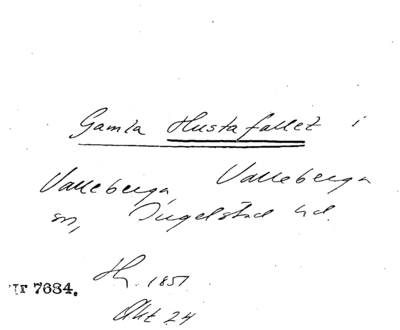 Gamla Hustafallet i
Valleberga, Valleberga
sn, Ingelstad hd.
Hg. 1851
Nr 7684.
Akt 24